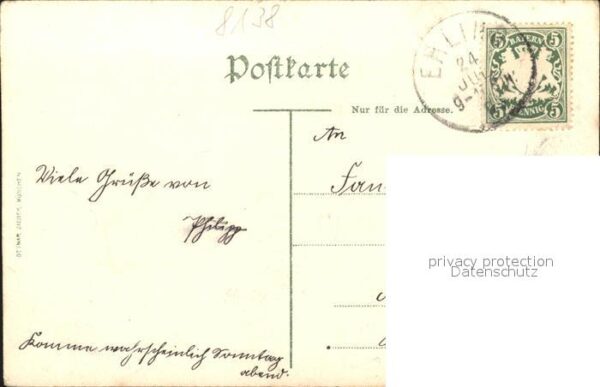 8138
Postkarte
Nur für die Adresse.
EHLIN
24
JUL
BAYERN
5 5
5 PFENNIG 5
An
Fam
Viele Grüße von
Philipp
OTTMAR ZIEHER, MÜNCHEN
privacy protection
Datenschutz
Komme wahrscheinlich Sonntag
abend.